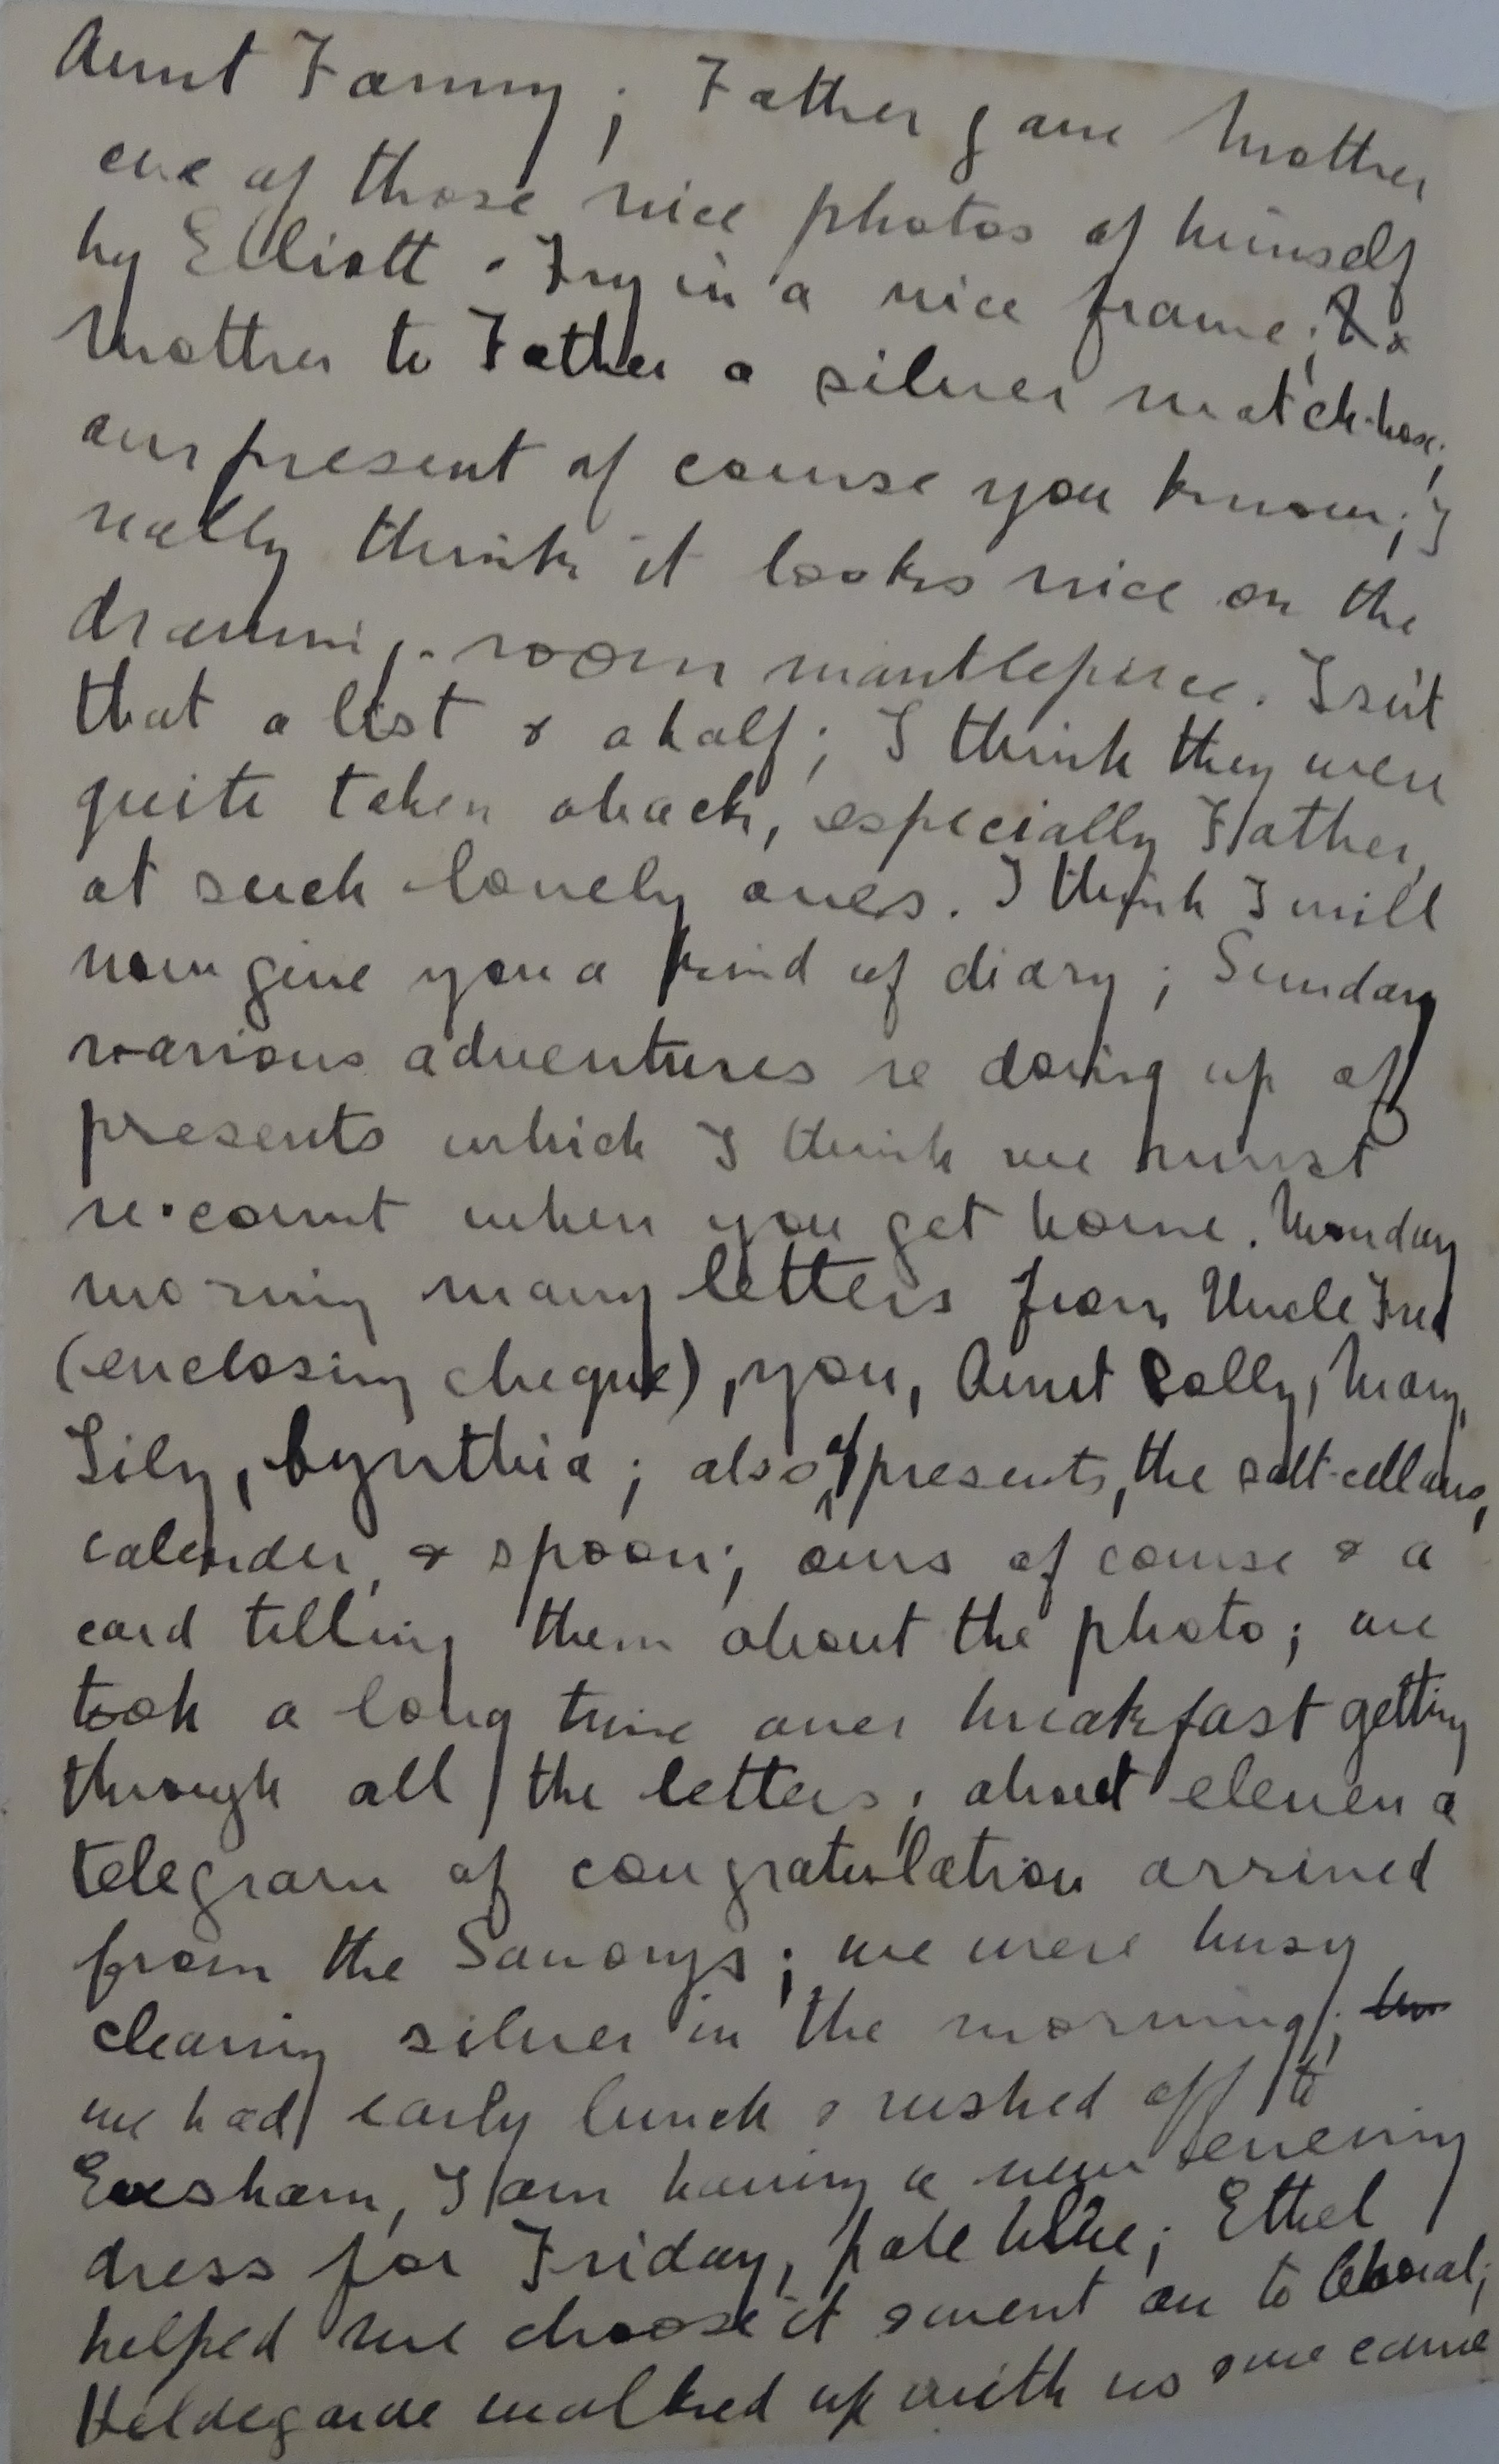 Aunt Fanny; Father gave Mother
one of those nice photos of himself
by Elliott - Fry in a nice frame;
Mother to Father a silver match-box;
our present of course you know; I
really think it looks nice on the
drawing-room mantlepiece. Isn't
that a list & a half; I think they were
quite taken aback, especially Father,
at such lovely ones. I think I will
now give you a kind of diary; Sunday
various adventures re doing up of
presents which I think we must
re-count when you get home. Monday
morning many letters from Uncle Fred
(enclosing cheque), you, Aunt Polly, Mary,
Lily, Cynthia; also of presents, the salt-cellars,
calender, & spoon; ours of course & a
card telling them about the photo; we
took a long time over breakfast getting
through all the letters; about eleven a
telegram of congratulation arrived
from the Savorys; we were busy
cleaning silver in the morning;
we had early lunch & rushed off to
Evesham, I am having a new evening
dress for Friday, pale blue; Ethel
helped me choose it & went on to Choral;
Hildegarde walked up with us & we came